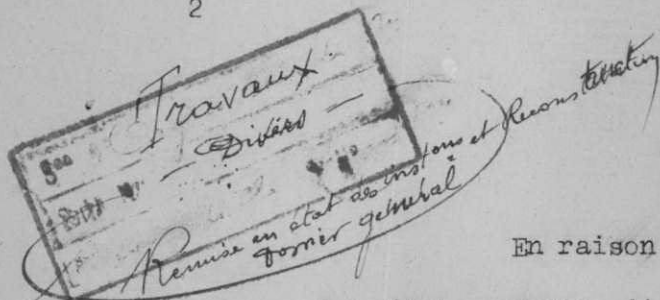 2
Travaux
Divers
Son
Remise en état des instons et Reconstruction
Dossier général
En raison